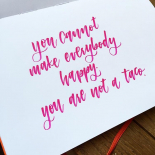 you cannot
make everybody
happy.
you are not a taco.